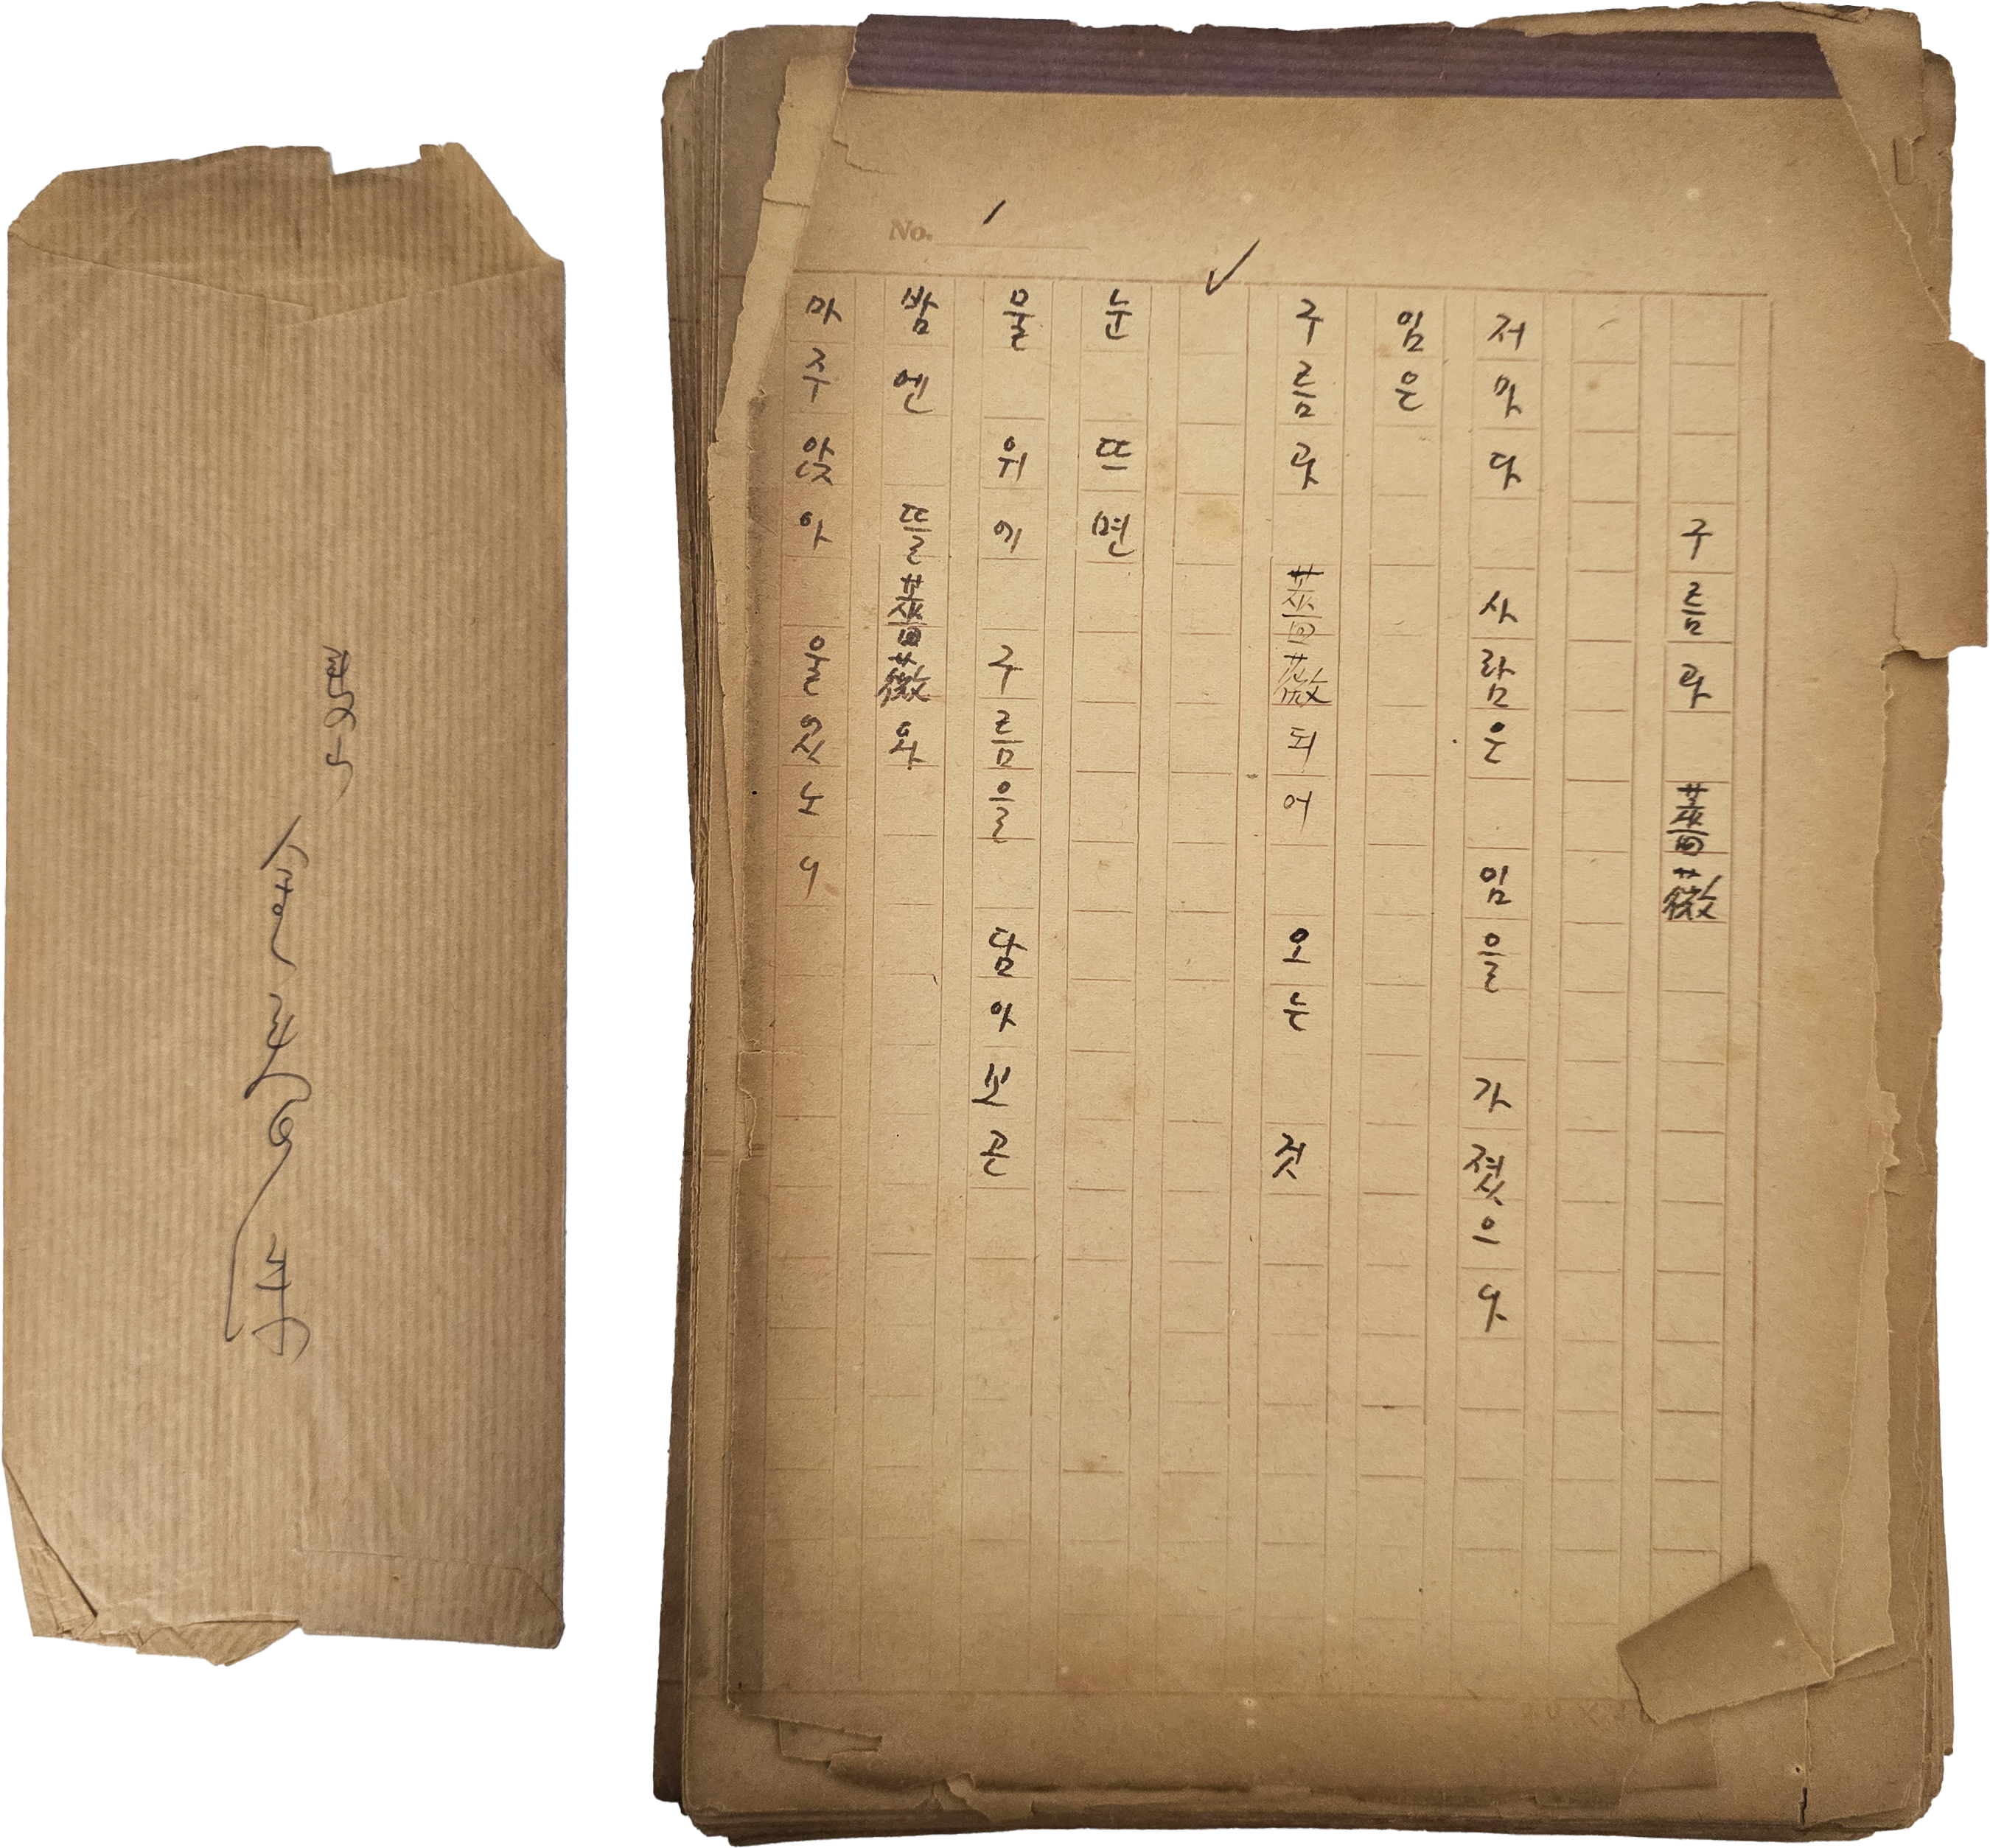 No. 1
구름과 薔薇
저마다 사람은 임을 가졌으나
임은
구름과 薔薇되어 오는 것
눈 뜨면
물 위에 구름을 담아 보곤
밤엔 뜰薔薇와
마주앉아 울었노니